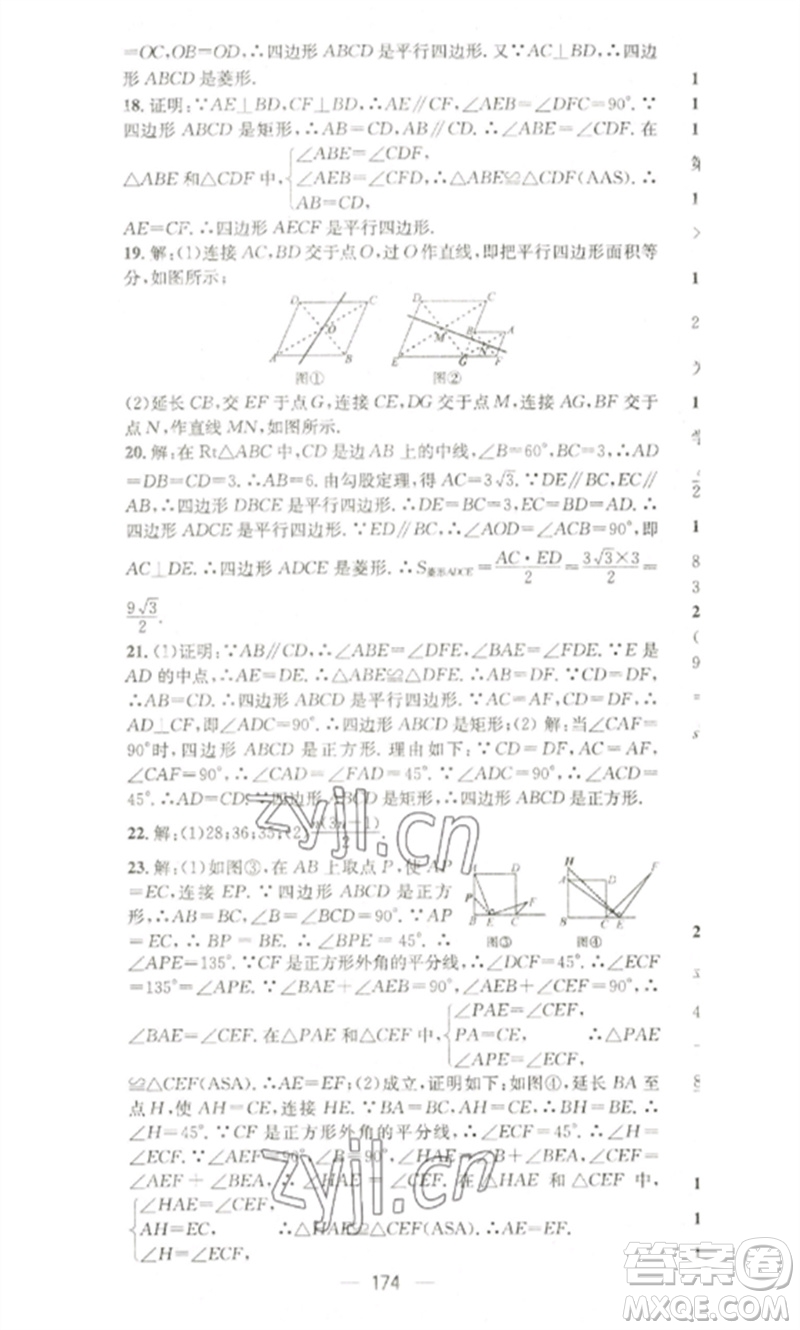 =OC,OB=OD,∴四边形 ABCD 是平行四边形. 又∵AC⊥BD,∴四边
形 ABCD 是菱形.
18. 证明:∵AE⊥BD,CF⊥BD,∴AE∥CF,∠AEB=∠DFC=90°. ∵
四边形 ABCD 是矩形,∴AB=CD,AB∥CD,∴∠ABE=∠CDF. 在
∠ABE=∠CDF,
△ABE 和△CDF 中, ∠AEB=∠CFD,∴△ABE≌△CDF(AAS). ∴
AB=CD,
AE=CF. ∴四边形 AECF 是平行四边形.
19. 解:(1)连接 AC,BD 交于点 O,过 O 作直线,即把平行四边形面积等
分,如图所示;
D C O A B
D C B A M N E G F
图① 图②
(2)延长 CB,交 EF 于点 G,连接 CE,DG 交于点 M,连接 AG,BF 交于
点 N,作直线 MN,如图所示.
20. 解:在 Rt△ABC 中,CD 是边 AB 上的中线,∠B=60°,BC=3,∴AD
=DB=CD=3. ∴AB=6. 由勾股定理,得 AC=3√3. ∵DE∥BC,EC∥
AB,∴四边形 DBCE 是平行四边形. ∴DE=BC=3,EC=DB=AD. ∴
四边形 ADCE 是平行四边形. ∵ED∥BC,∴∠AOD=∠ACB=90°,即
AC⊥DE. ∴四边形 ADCE 是菱形. ∴S菱形ADCE=AC·ED/2=3√3×3/2=
9√3/2.
21. (1)证明:∵AB∥CD,∴∠ABE=∠DFE,∠BAE=∠FDE. ∵E 是
AD 的中点,∴AE=DE. ∴△ABE≌△DFE. ∴AB=DF. ∵CD=DF,
∴AB=CD. ∴四边形 ABCD 是平行四边形. ∵AC=AF,CD=DF,∴
AD⊥CF,即∠ADC=90°. ∴四边形 ABCD 是矩形;(2) 解:当∠CAF=
90°时,四边形 ABCD 是正方形. 理由如下:∵CD=DF,AC=AF,
∠CAF=90°,∴∠CAD=∠FAD=45°. ∵∠ADC=90°,∴∠ACD=
45°. ∴AD=CD. ∵四边形 ABCD 是矩形,∴四边形 ABCD 是正方形.
22. 解:(1)28;36;35;(2)n(3n-1)/2.
23. 解:(1)如图③,在 AB 上取点 P,使 AP
=EC,连接 EP. ∵四边形 ABCD 是正方
形,∴AB=BC,∠B=∠DCB=90°. ∵AP
=EC,∴BP=BE. ∴∠BPE=45°. ∴
A D P F B E C
H A D F B C E
图③ 图④
∠APE=135°. ∵CF 是正方形外角的平分线,∴∠DCF=45°. ∴∠ECF
=135°=∠APE. ∵∠BAE+∠AEB=90°,∠AEB+∠CEF=90°,∴
∠PAE=∠CEF,
∠BAE=∠CEF. 在△PAE 和△CEF 中, PA=CE, ∴△PAE
∠APE=∠ECF,
≌△CEF(ASA). ∴AE=EF;(2)成立,证明如下:如图④,延长 BA 至
点 H,使 AH=CE,连接 HE. ∵AB=BC,AH=CE,∴BH=BE. ∴
∠H=45°. ∵CF 是正方形外角的平分线,∴∠ECF=45°. ∴∠H=
∠ECF. ∵∠AEF=90°,∠B=90°,∠HAE=∠B+∠BEA,∠CEF=
∠AEF+∠BEA,∴∠HAE=∠CEF. 在△HAE 和△CEF 中,
∠HAE=∠CEF,
AH=EC, ∴△HAE≌△CEF(ASA). ∴AE=EF.
∠H=∠ECF,
174
zyjl.cn
zyjl.cn
答案卷
MXQE.COM